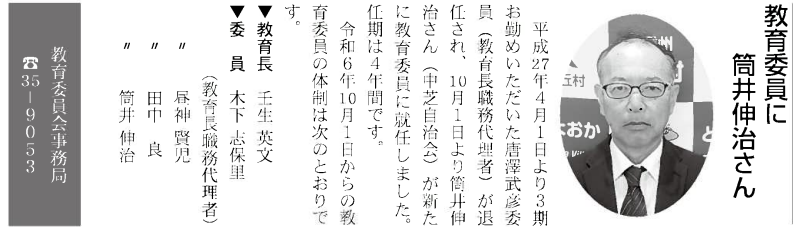 教育委員に
筒井伸治さん
平成27年4月1日より3期
お勤めいただいた唐澤武彦委
員(教育長職務代理者)が退
任され、10月1日より筒井伸
治さん(中芝自治会)が新た
に教育委員に就任しました。
任期は4年間です。
令和6年10月1日からの教
育委員の体制は次のとおりで
す。
▼教育長 壬生 英文
▼委 員 木下 志保里
(教育長職務代理者)
〃 昼神 賢児
〃 田中 良
〃 筒井 伸治
教育委員会事務局
☎35-9053
丘村